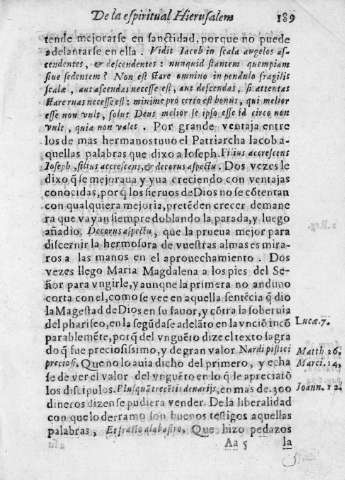 De la espiritual Hierusalem 189
tende mejorarse en sanctidad, porque no puede
adelantarse en ella. Vidit Iacob in scala angelos as-
cendentes, & descendentes: nunquid stantem quempiam
siue sedentem? Non est stare omnino in pendulo fragilis
scalæ, aut ascendas necesse est, aut descendas, si attentas
stare ruas necesse est: minime pro certo est bonus, qui melior
esse non vult, solus Deus melior se ipso esse id circo non
vult, quia non valet. Por grande ventaja entre
los de mas hermanos tuuo el Patriarcha Iacob a-
quellas palabras que dixo a Ioseph. Filius accrescens
Ioseph, filius accrescens, & decorus aspectu. Dos vezes le
dixo q̃ se mejoraua y yua creciendo con ventajas
conocidas, porq̃ los sieruos de Dios no se cõtentan
con qualquiera mejoria, pretẽden crecer de mane
ra que vayan siempre doblando la parada, y luego
añadio. Decorus aspectu, que la prueua mejor para
discernir la hermosura de vuestras almas es mira-
ros a las manos en el aprouechamiento. Dos
vezes llego Maria Magdalena a los pies del Se-
ñor para vngirle, y aunque la primera no anduuo
corta con el, como se vee en aquella sentẽcia q̃ dio
la Magestad de Dios en su fauor, y cõtra la soberuia
del phariseo, en la segũda se adelãto en la vnciõ incõ
parablemẽte, porq̃ del vnguẽto dize el texto sagra
do q̃ fue preciosissimo, y de gran valor Nardi pistici
preciosi. Que no lo auia dicho del primero, y echa
se de ver el valor del vnguẽto en lo q̃ le apreciatõ
los discipulos. Plusquã trecẽtis denarijs, en mas de 300
dineros dizen se pudiera vender. De la liberalidad
con que lo derramo son buenos testigos aquellas
palabras, Et fracto alabastro, Que hizo pedazos
Aa 5 la
Lucæ. 7.
Matth. 26.
Marci. 14.
Ioann. 12.